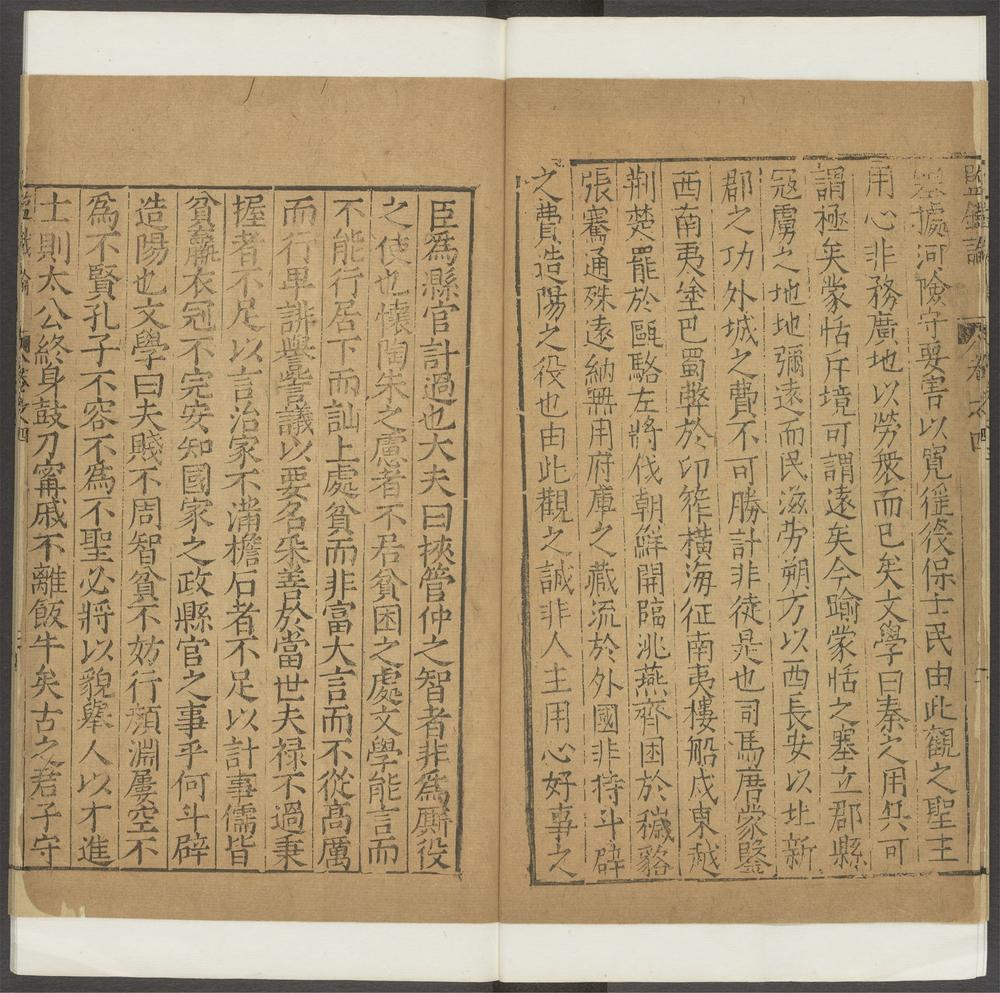 鹽鐵論 卷之四
塞據河險守要害以寬徭役保士民由此觀之聖主
用心非務廣地以勞衆而已矣文學曰秦之用兵可
謂極矣蒙恬斥境可謂遠矣今踰蒙恬之塞立郡縣
冦虜之地地彌遠而民滋勞朔方以西長安以北新
郡之功外城之費不可勝計非徒是也司馬唐蒙鑿
西南夷塗巴蜀弊於卭筰橫海征南夷樓船戍東越
荆楚罷於甌駱左將伐朝鮮開臨洮燕齊困於穢貉
張騫通殊遠納無用府庫之藏流於外國非特斗辟
之費造陽之役也由此觀之誠非人主用心好事之
臣爲縣官計過也大夫曰挾管仲之智者非爲厮役
之使也懷陶朱之慮者不居貧困之處文學能言而
不能行居下而訕上處貧而非富大言而不從高厲
而行卑誹譽訾議以要名采善於當世夫禄不過秉
握者不足以言治家不滿檐石者不足以計事儒皆
貧羸衣冠不完安知國家之政縣官之事乎何斗辟
造陽也文學曰夫賤不周智貧不妨行顏淵屢空不
爲不賢孔子不容不爲不聖必將以貌舉人以才進
士則太公終身鼓刀甯戚不離飯牛矣古之君子守
鹽鐵論 卷之四